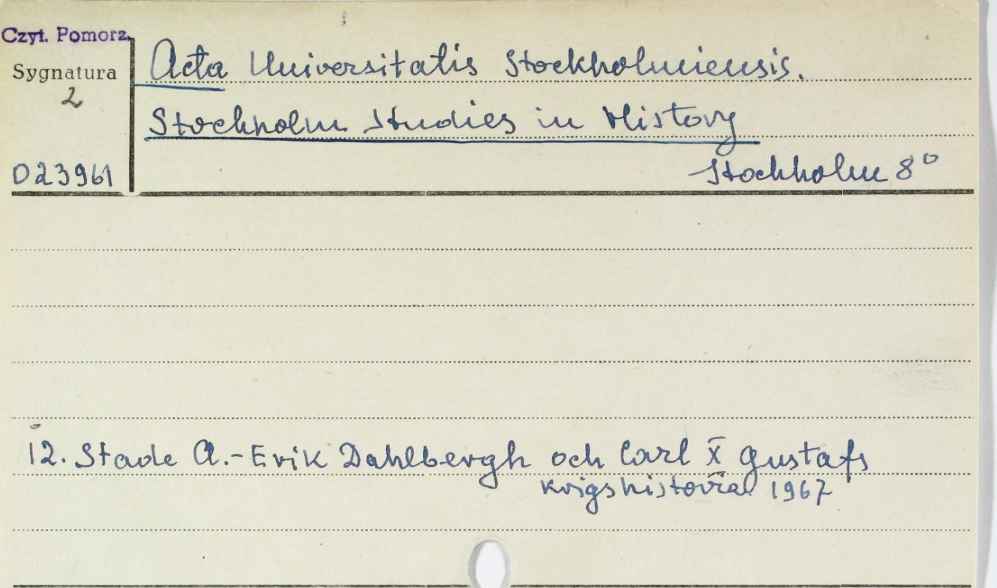 Czyt. Pomorz.
Sygnatura
2
D23961
Acta Universitatis Stockholmiensis.
Stockholm Studies in History
Stockholm 8°
12. Stade A.-Erik Dahlbergh och Carl X Gustafs
krigshistoria 1967